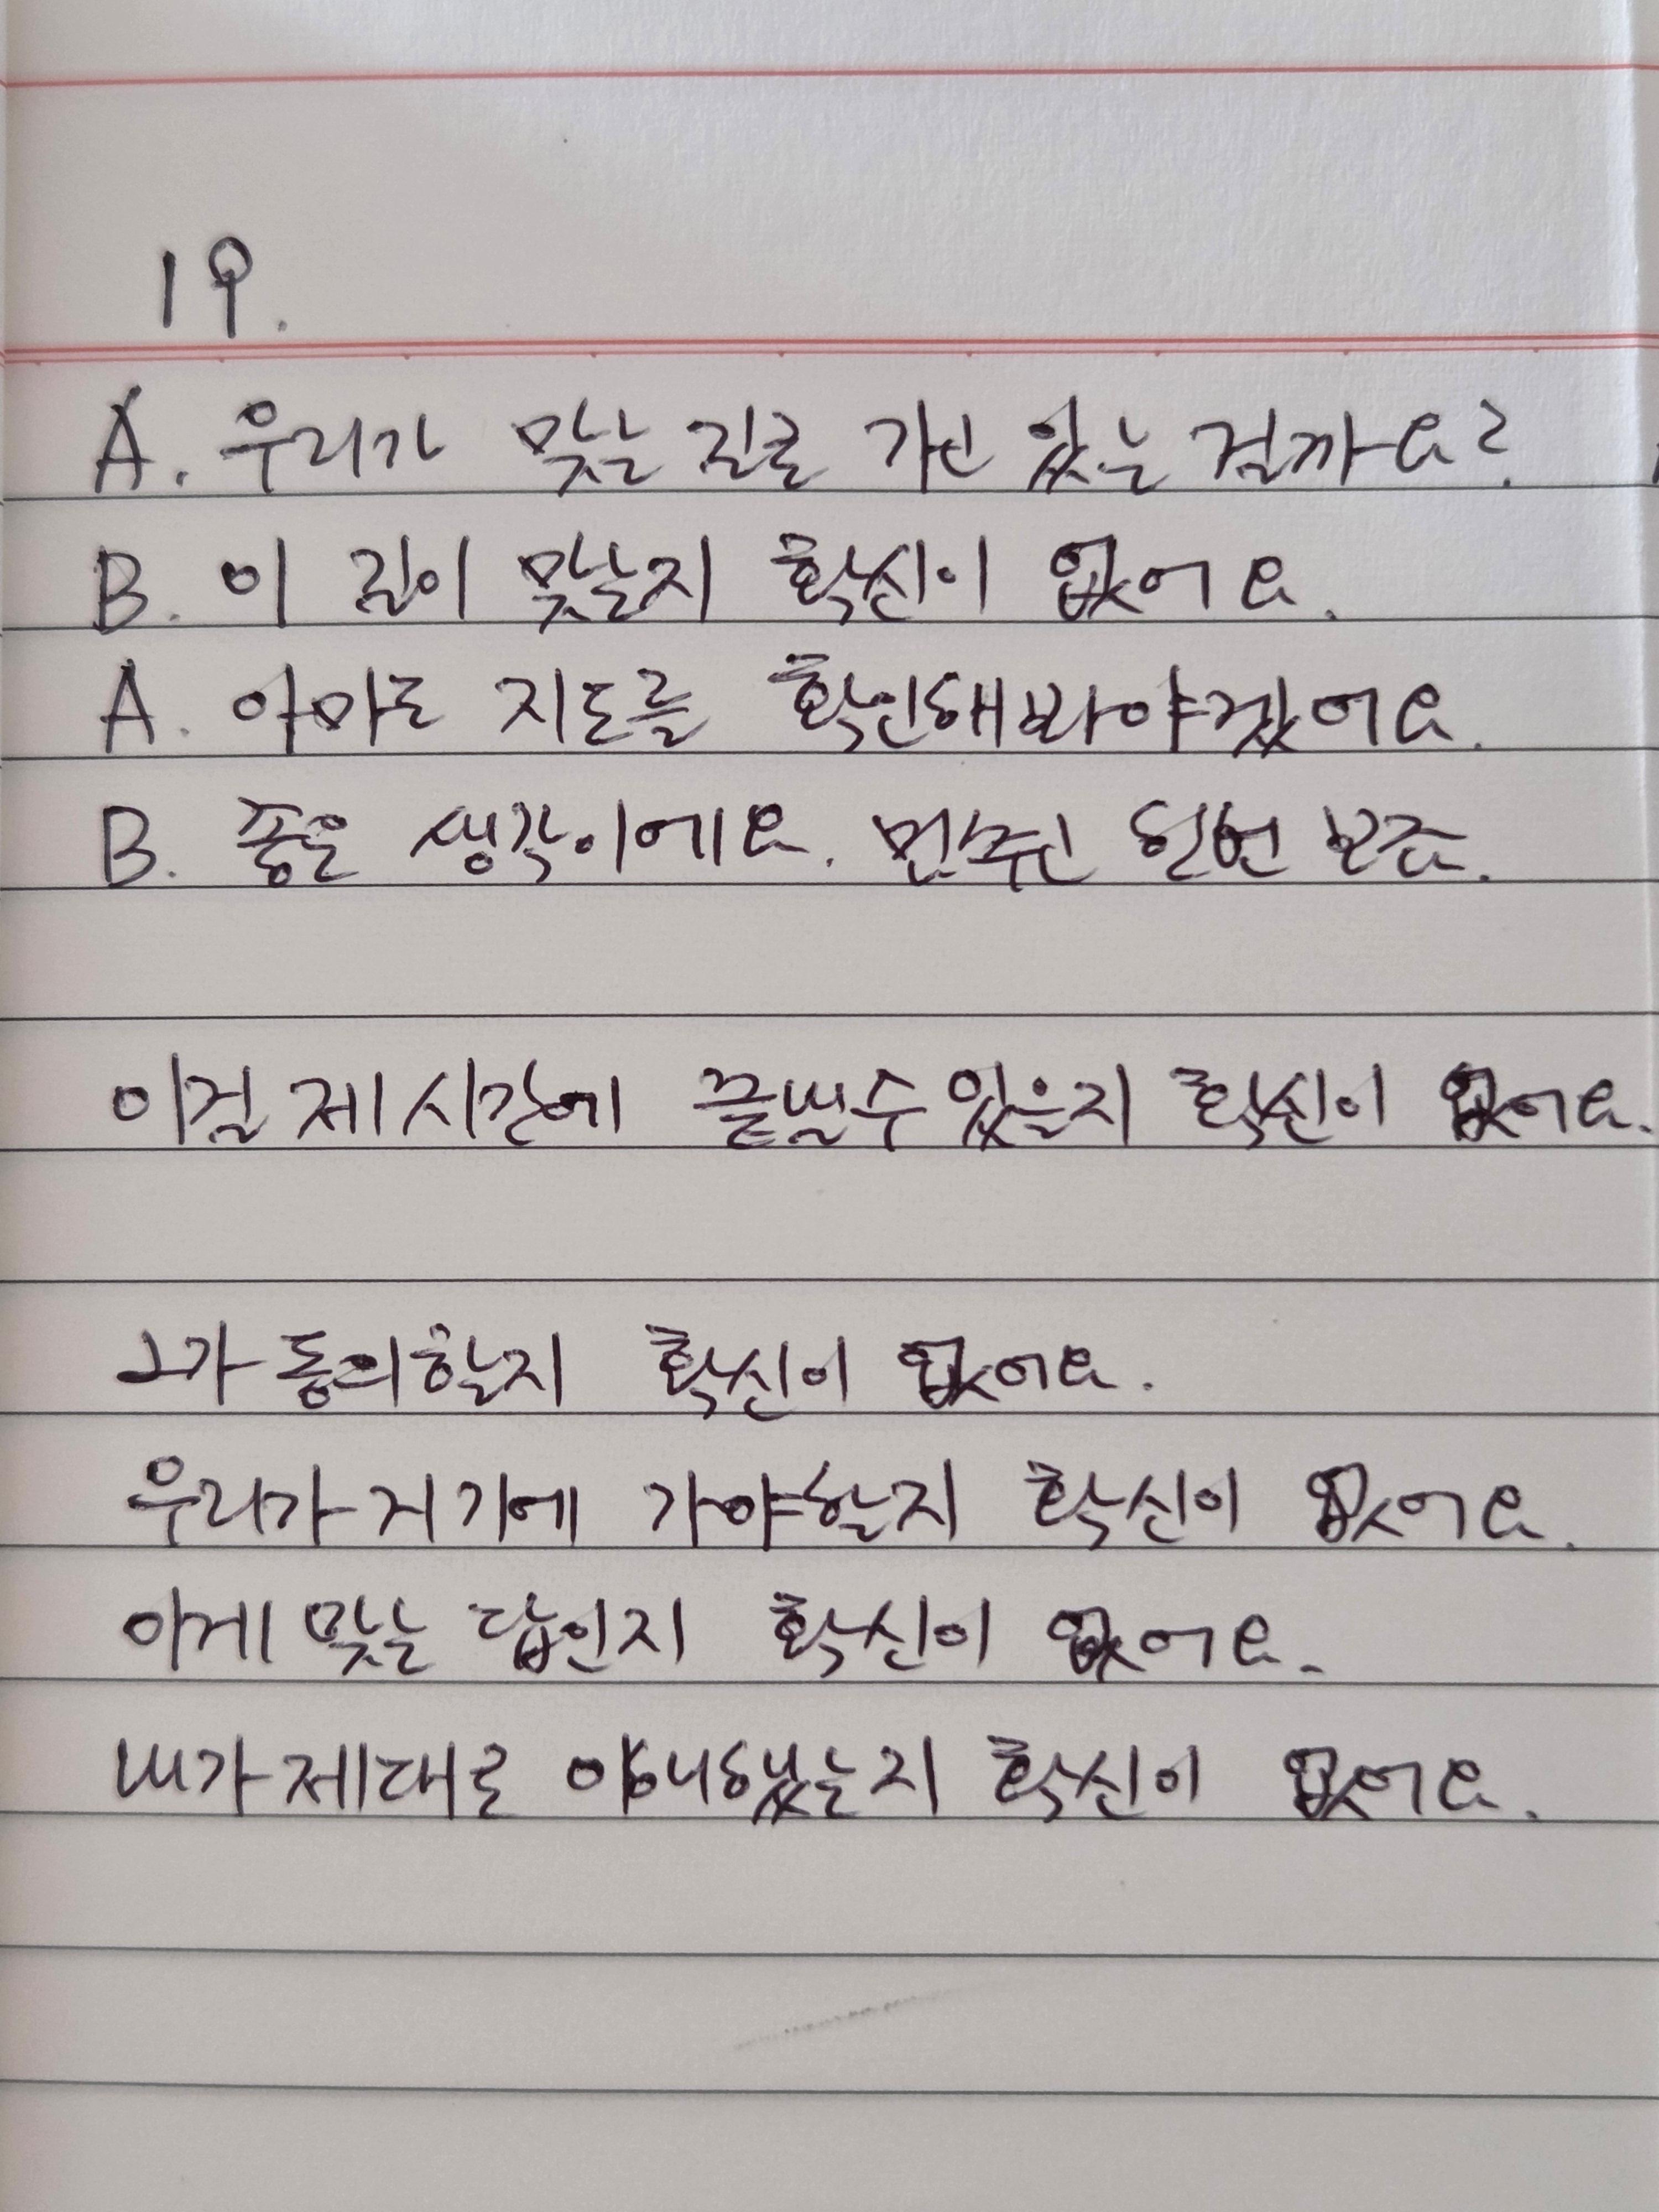 19.
A. 우리가 맞는 길로 가고 있는 걸까요?
B. 이 길이 맞는지 확신이 없어요.
A. 아마도 지도를 확인해봐야겠어요.
B. 좋은 생각이에요. 멈추고 한번 보죠.
이걸 제시간에 끝낼수 있을지 확신이 없어요.
그가 동의할지 확신이 없어요.
우리가 거기에 가야할지 확신이 없어요.
이게 맞는 답인지 확신이 없어요.
내가 제대로 이해했는지 확신이 없어요.